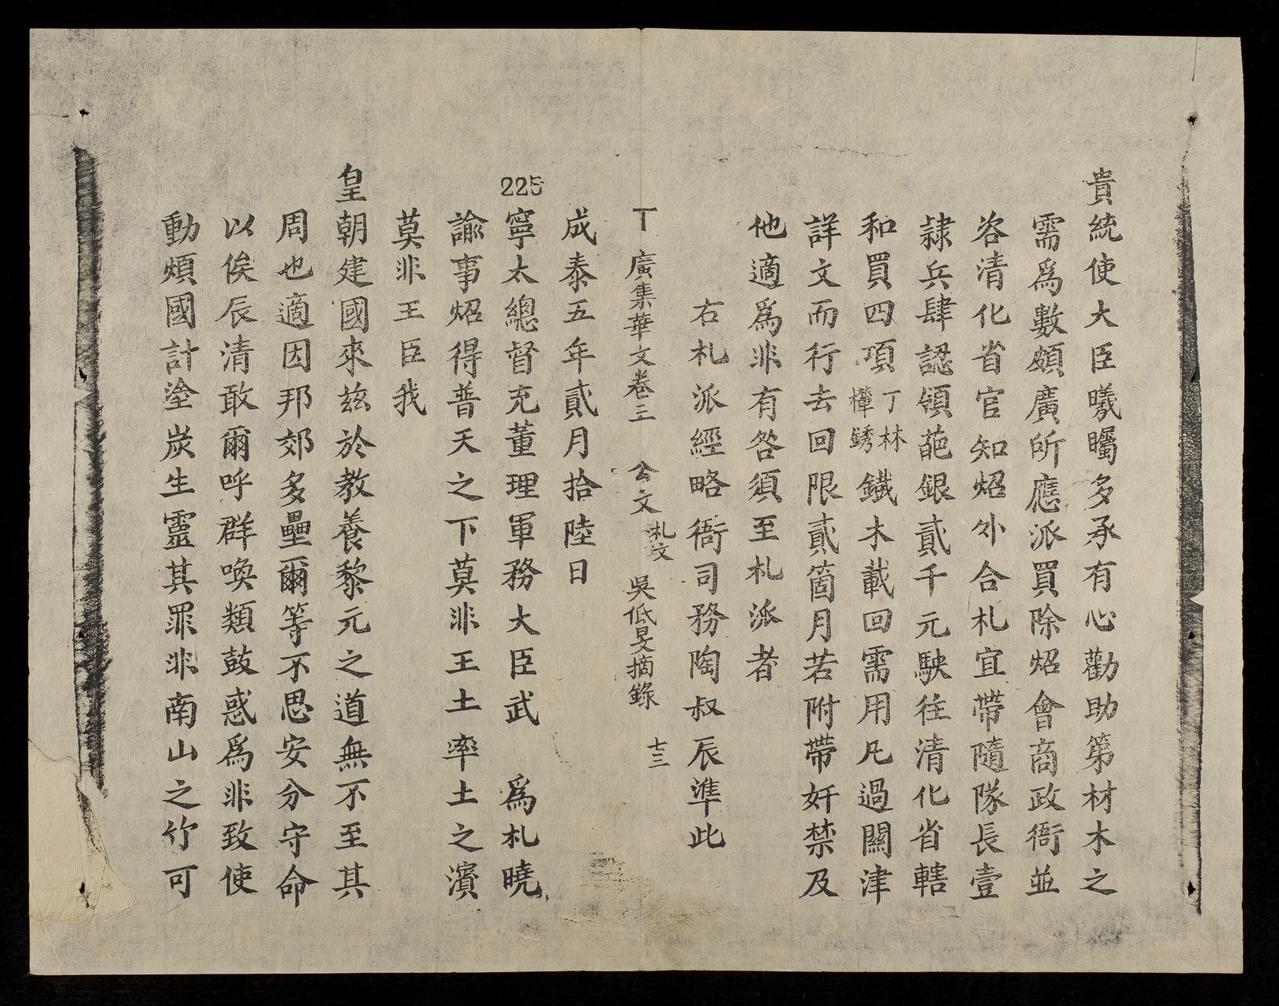 貴統使大臣曦矚多承有心勸助第材木之
需爲數頗廣所應派買除炤會商政衙並
咨清化省官知炤外合札宜帶隨隊長壹
隸兵肆認領葩銀貳千元駛往清化省轄
和買四項丁林樺銹鐵木載回需用凡過關津
詳文而行去回限貳箇月若附帶奸禁及
他適爲非有咎須至札派者
右札派經略衙司務陶叔辰準此
丁 廣集華文卷三 公文 札文 吳低旻摘錄 十三
成泰五年貳月拾陸日
225
寧太總督充董理軍務大臣武 爲札曉
諭事炤得普天之下莫非王土率土之濱
莫非王臣我
皇朝建國來玆於教養黎元之道無不至其
周也適因邦郊多壘爾等不思安分守命
以俟辰清敢爾呼群喚類鼓惑爲非致使
動煩國計塗炭生靈其罪非南山之竹可